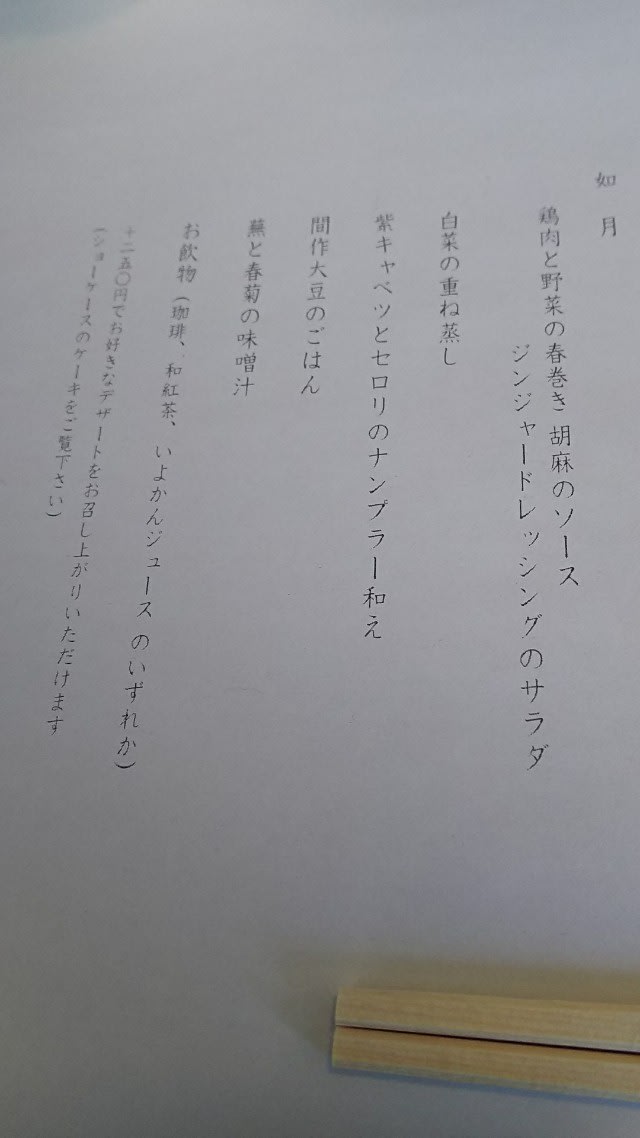 如月
鶏肉と野菜の春巻き 胡麻のソース
ジンジャードレッシングのサラダ
白菜の重ね蒸し
紫キャベツとセロリのナンプラー和え
間作大豆のごはん
蕪と春菊の味噌汁
お飲物（珈琲、和紅茶、いよかんジュース のいずれか）
＋二五〇円でお好きなデザートをお召し上がりいただけます
（ショーケースのケーキをご覧下さい）